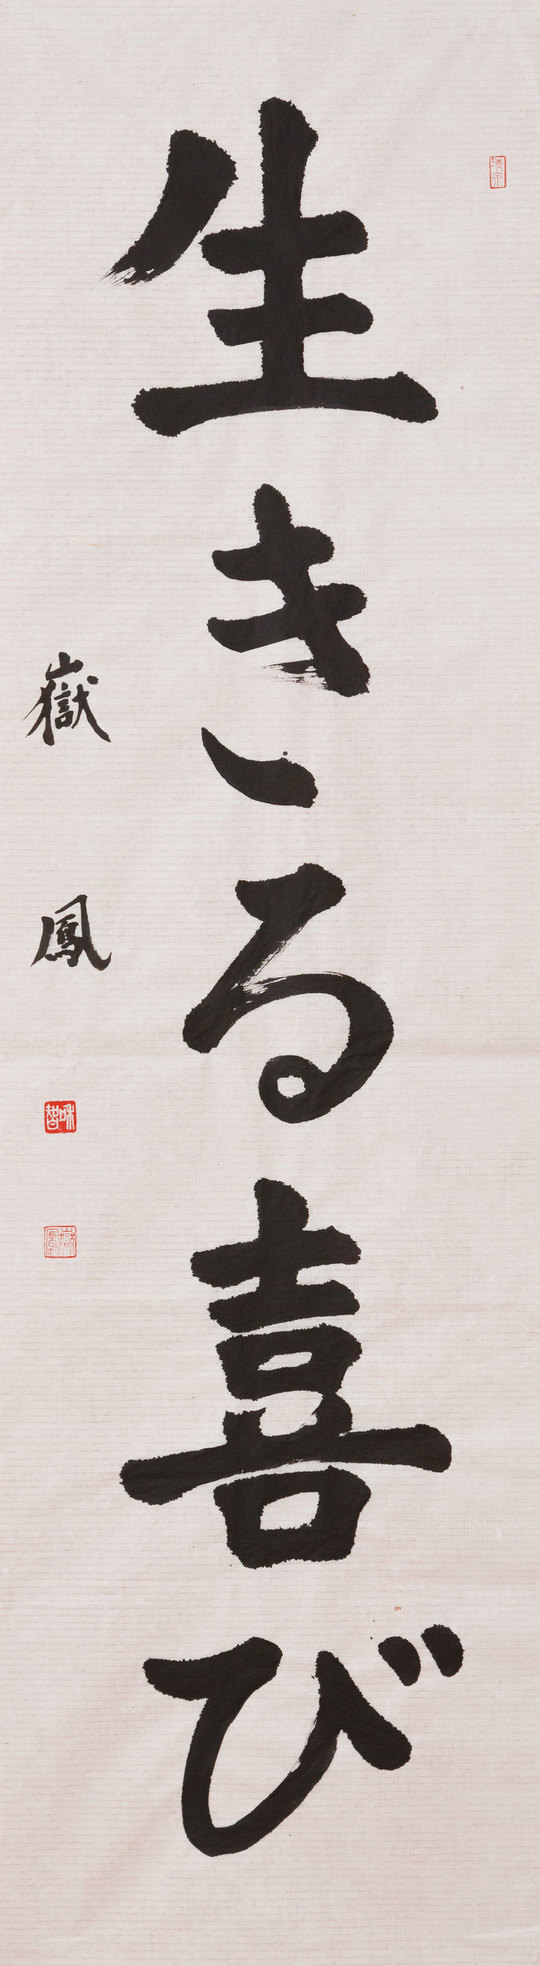 生きる喜び
嶽鳳